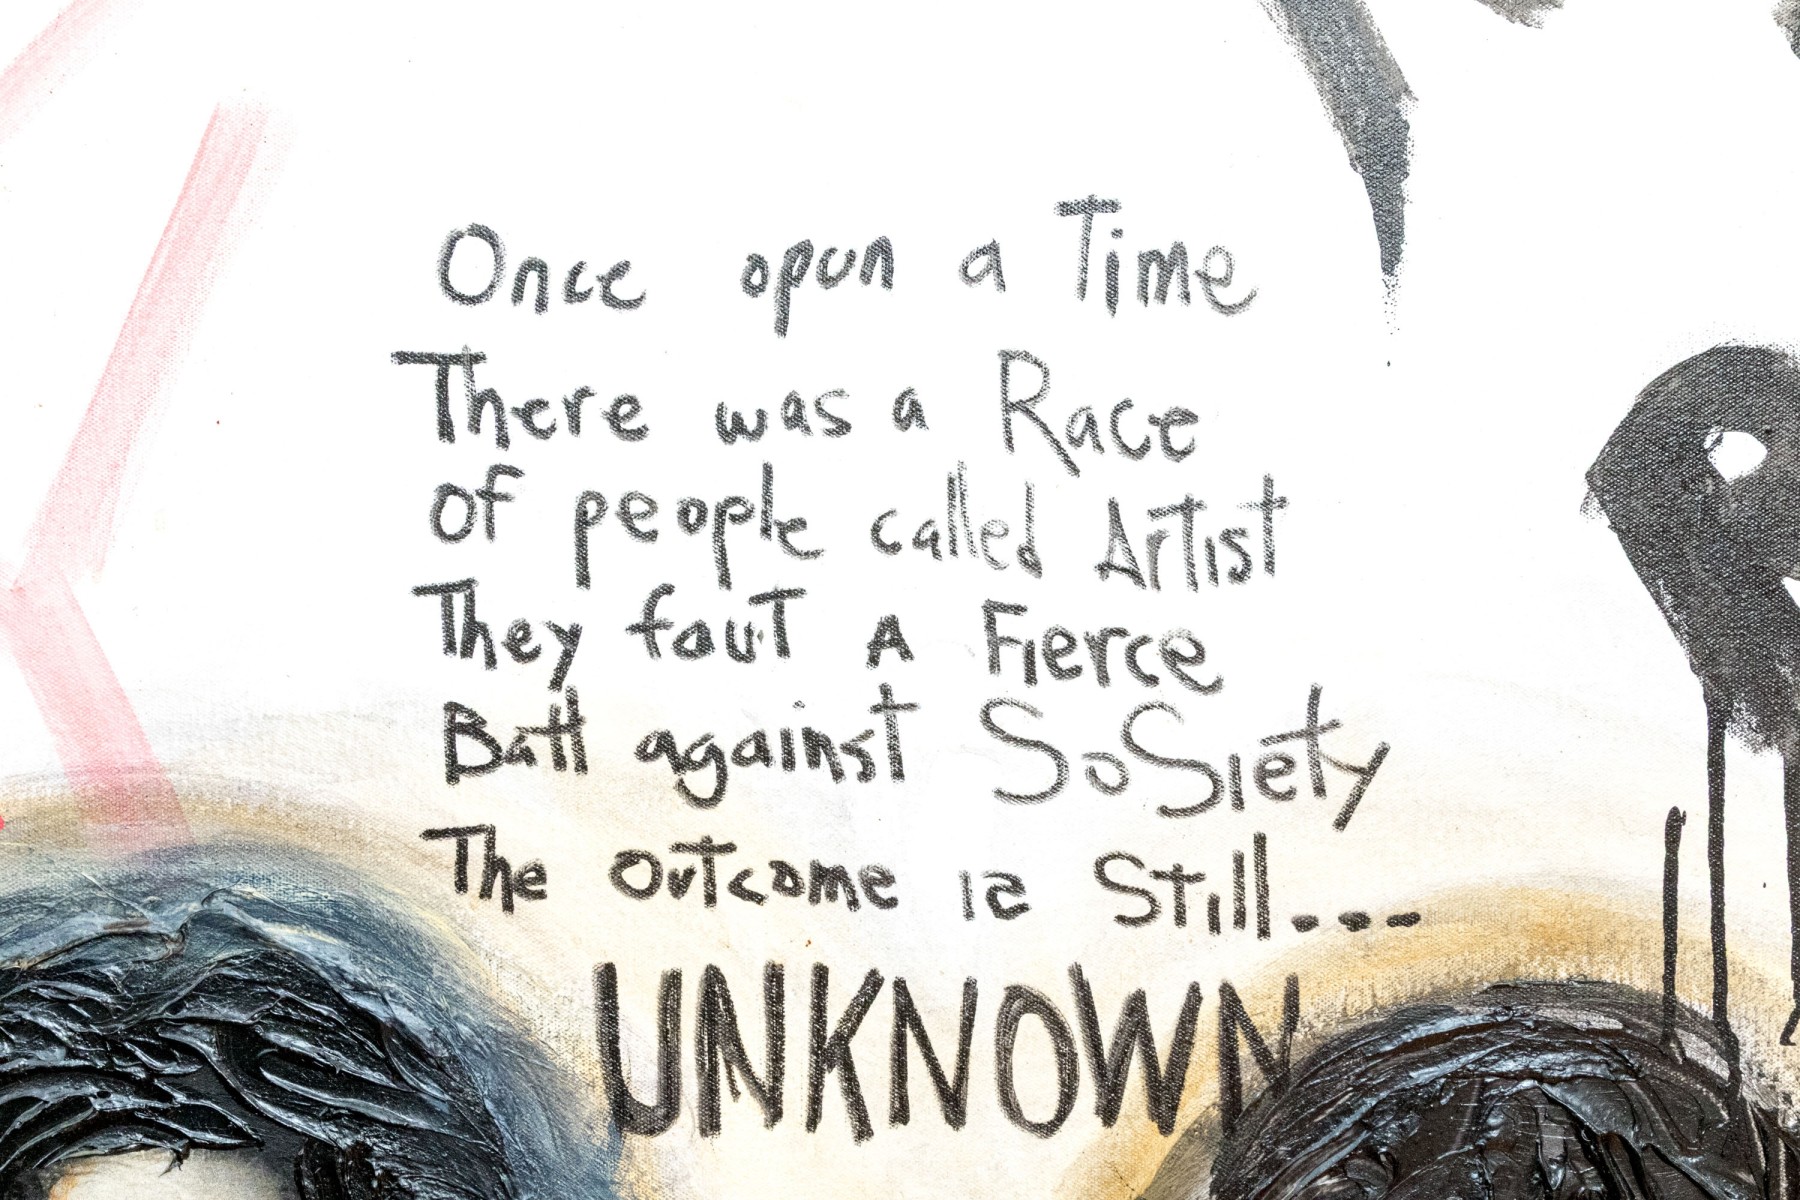 Once opun a Time
There was a Race
of people called Artist
They faut A Fierce
Batl against SoSiety
The outcome is Still...
UNKNOWN